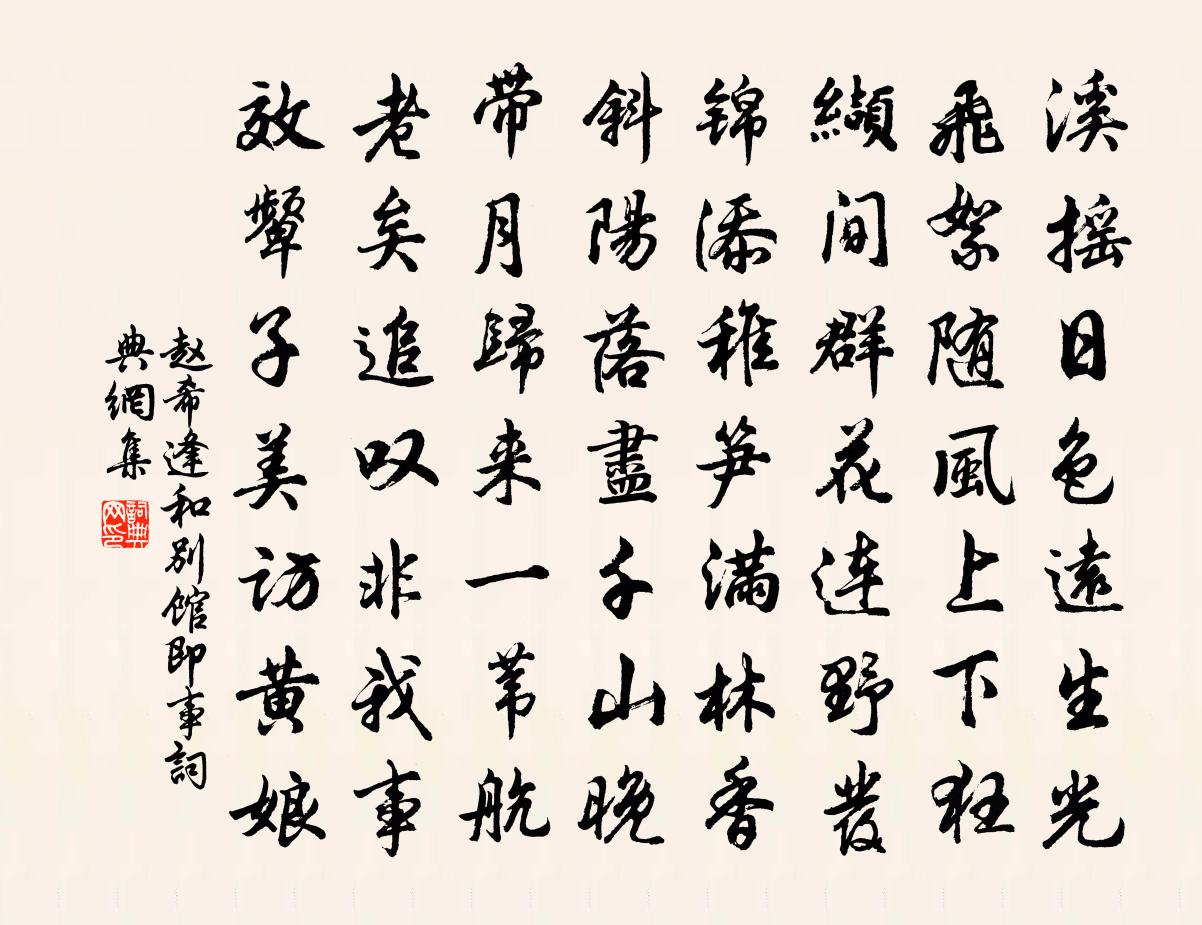 溪摇日色遠生光
飛絮随風上下狂
纈间群花连野發
锦添稚笋满林香
斜陽落盡千山晚
带月歸来一苇航
老矣追叹非我事
效颦子美访黄娘
赵希逢和别馆即事詞
典網集
詞典网印